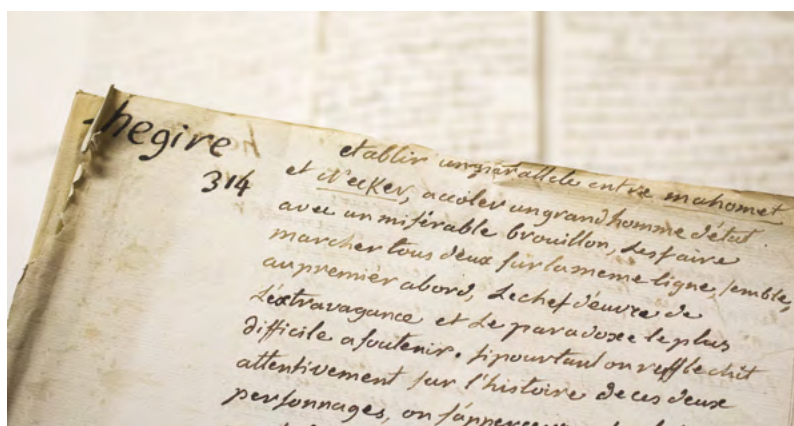 hegire
314
etablir un parallele entre mahomet
et Necker, accoler un grand homme d'état
avec un misérable brouillon, Les faire
marcher tous deux sur la meme ligne, semble,
au premier abord, Le chef d'euvre de
L'extravagance et Le paradoxe le plus
difficile a soutenir. si pourtant on refflechit
attentivement sur l'histoire de ces deux
personnages, on s'apperçoit